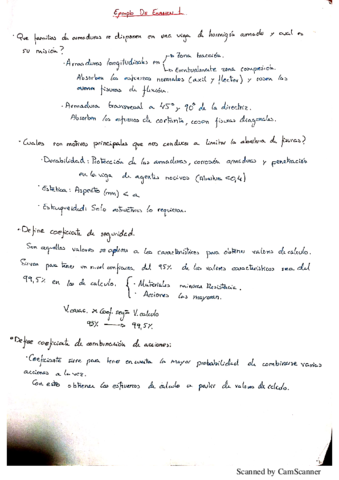 Ejemplo De Examen 1
· Que familias de armaduras se disponen en una viga de hormigón armado y cual es
su misión?
· Armaduras longitudinales en Zona tracción.
Eventualmente zona compresión.
Absorben los esfuerzos normales (axil y flector) y cosen las
fisuras de flexión.
· Armadura transversal a 45º y 90º de la directriz.
Absorben los esfuerzos de cortante, cosen fisuras diagonales.
· Cuales son motivos principales que nos conducen a limitar la abertura de fisuras?
· Durabilidad: Protección de las armaduras, corrosión armaduras y penetración
en la viga de agentes nocivos (
· Estetica: Aspecto (mm) <
· Estanqueidad: Solo estructuras lo requieran.
· Define coeficiente de seguridad.
Son aquellos valores se aplican a los caracteristicos para obtener valores de calculo.
Sirven para tener un nivel confianza del 95% de los valores caracteristicos sea del
99,5% en los de calculo. · Materiales minora Resistencia.
· Acciones las mayoran.
V.carac. x Coef. segu V. calculo
95% → 99,5%
* Define coeficiente de combinación de acciones:
· Coeficiente sirve para tener en cuenta la mayor probabilidad de combinarse varias
acciones a la vez.
Con esto obtienen los esfuerzos de calculo a partir de valores de calculo.
Scanned by CamScanner